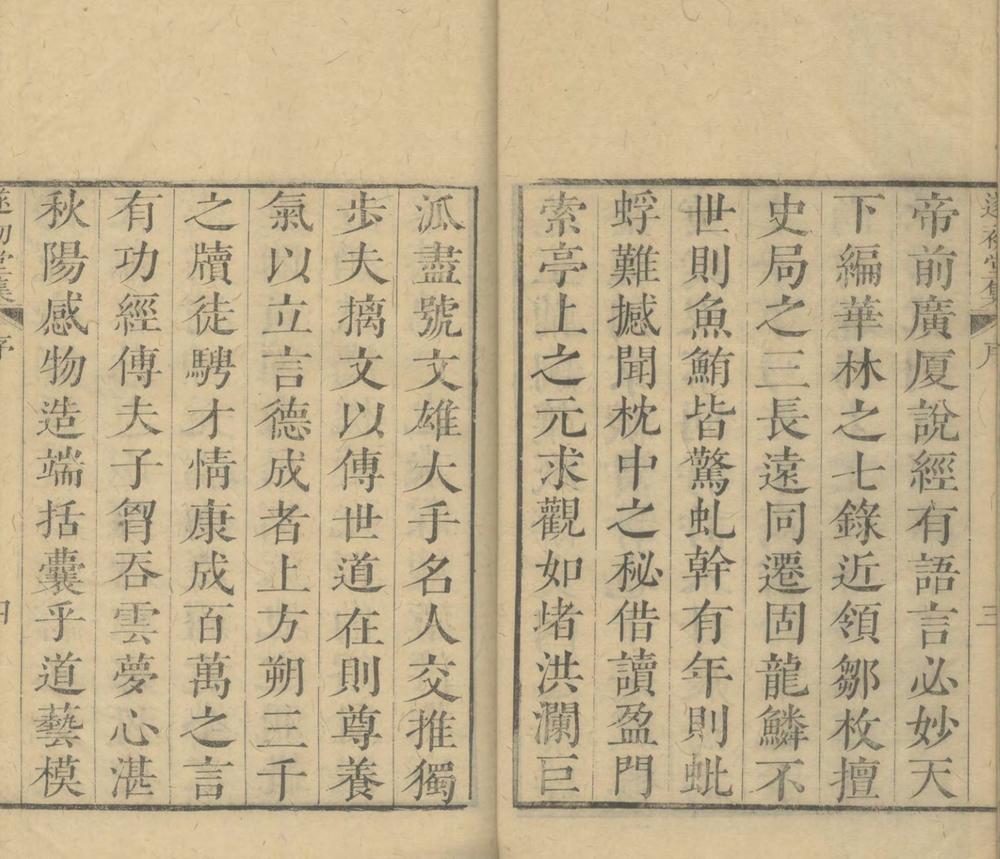 遂初堂集 序 三
帝前廣厦說經有語言必妙天
下編華林之七錄近領鄒枚擅
史局之三長遠同遷固龍鱗不
世則魚鮪皆驚虬幹有年則蚍
蜉難撼聞枕中之秘借讀盈門
索亭上之元求觀如堵洪瀾巨
泒盡號文雄大手名人交推獨
步夫摛文以傳世道在則尊養
氣以立言德成者上方朔三千
之牘徒騁才情康成百萬之言
有功經傳夫子胷吞雲夢心湛
秋陽感物造端括囊乎道藝模
遂初堂集 序 四